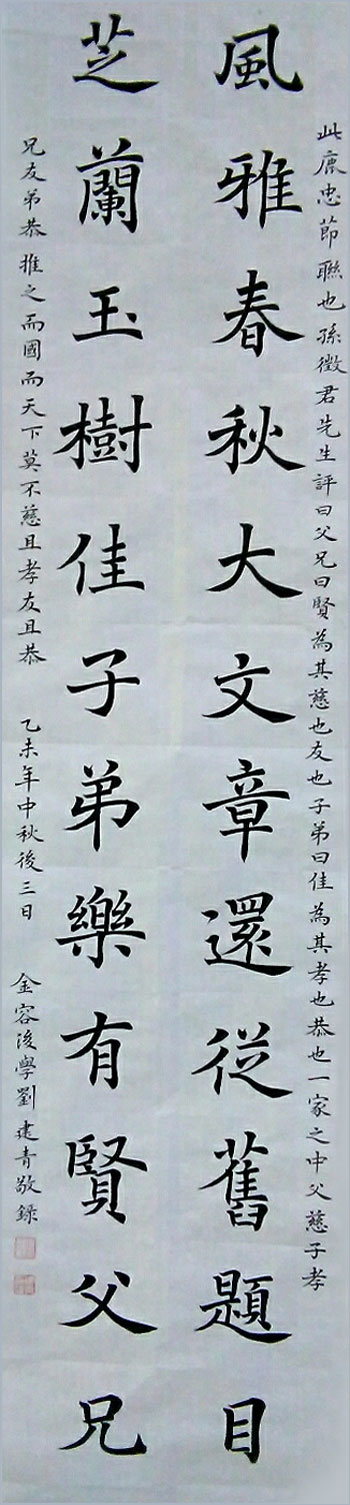 此鹿忠節聯也孫徵君先生評曰父兄曰賢為其慈也友也子弟曰佳為其孝也恭也一家之中父慈子孝
風雅春秋大文章還從舊題目
芝蘭玉樹佳子弟樂有賢父兄
兄友弟恭推之而國而天下莫不慈且孝友且恭 乙未年中秋後三日 金容後學劉建青敬錄